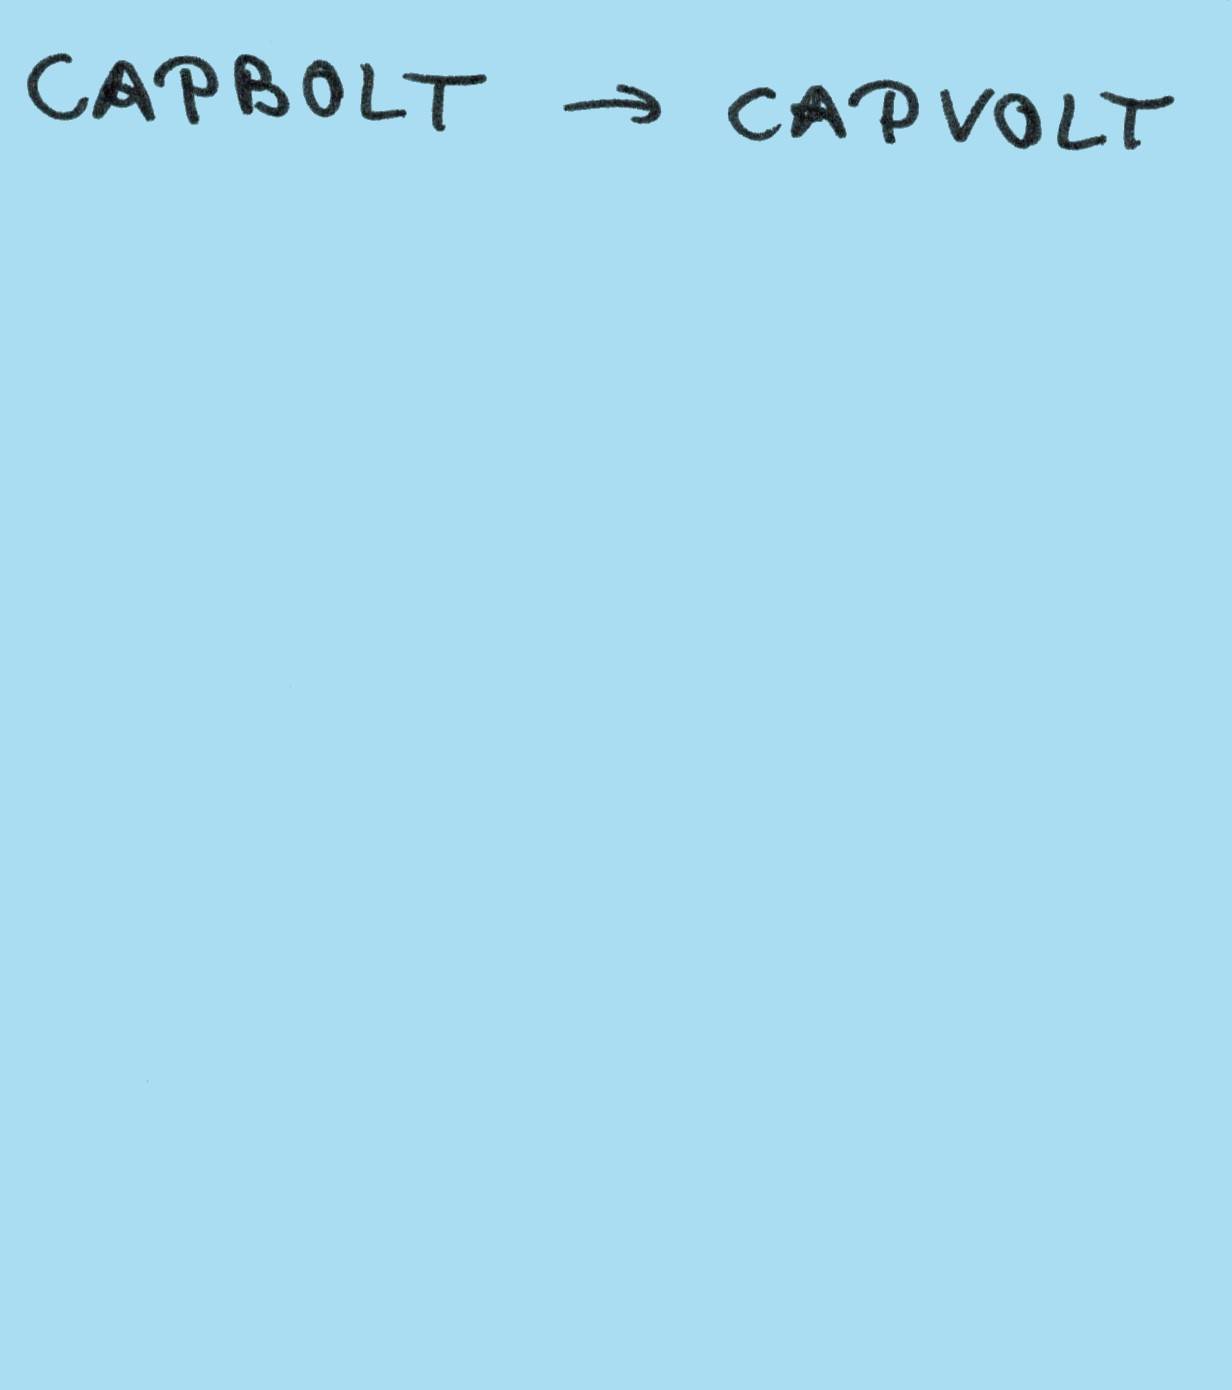 CAPBOLT → CAPVOLT